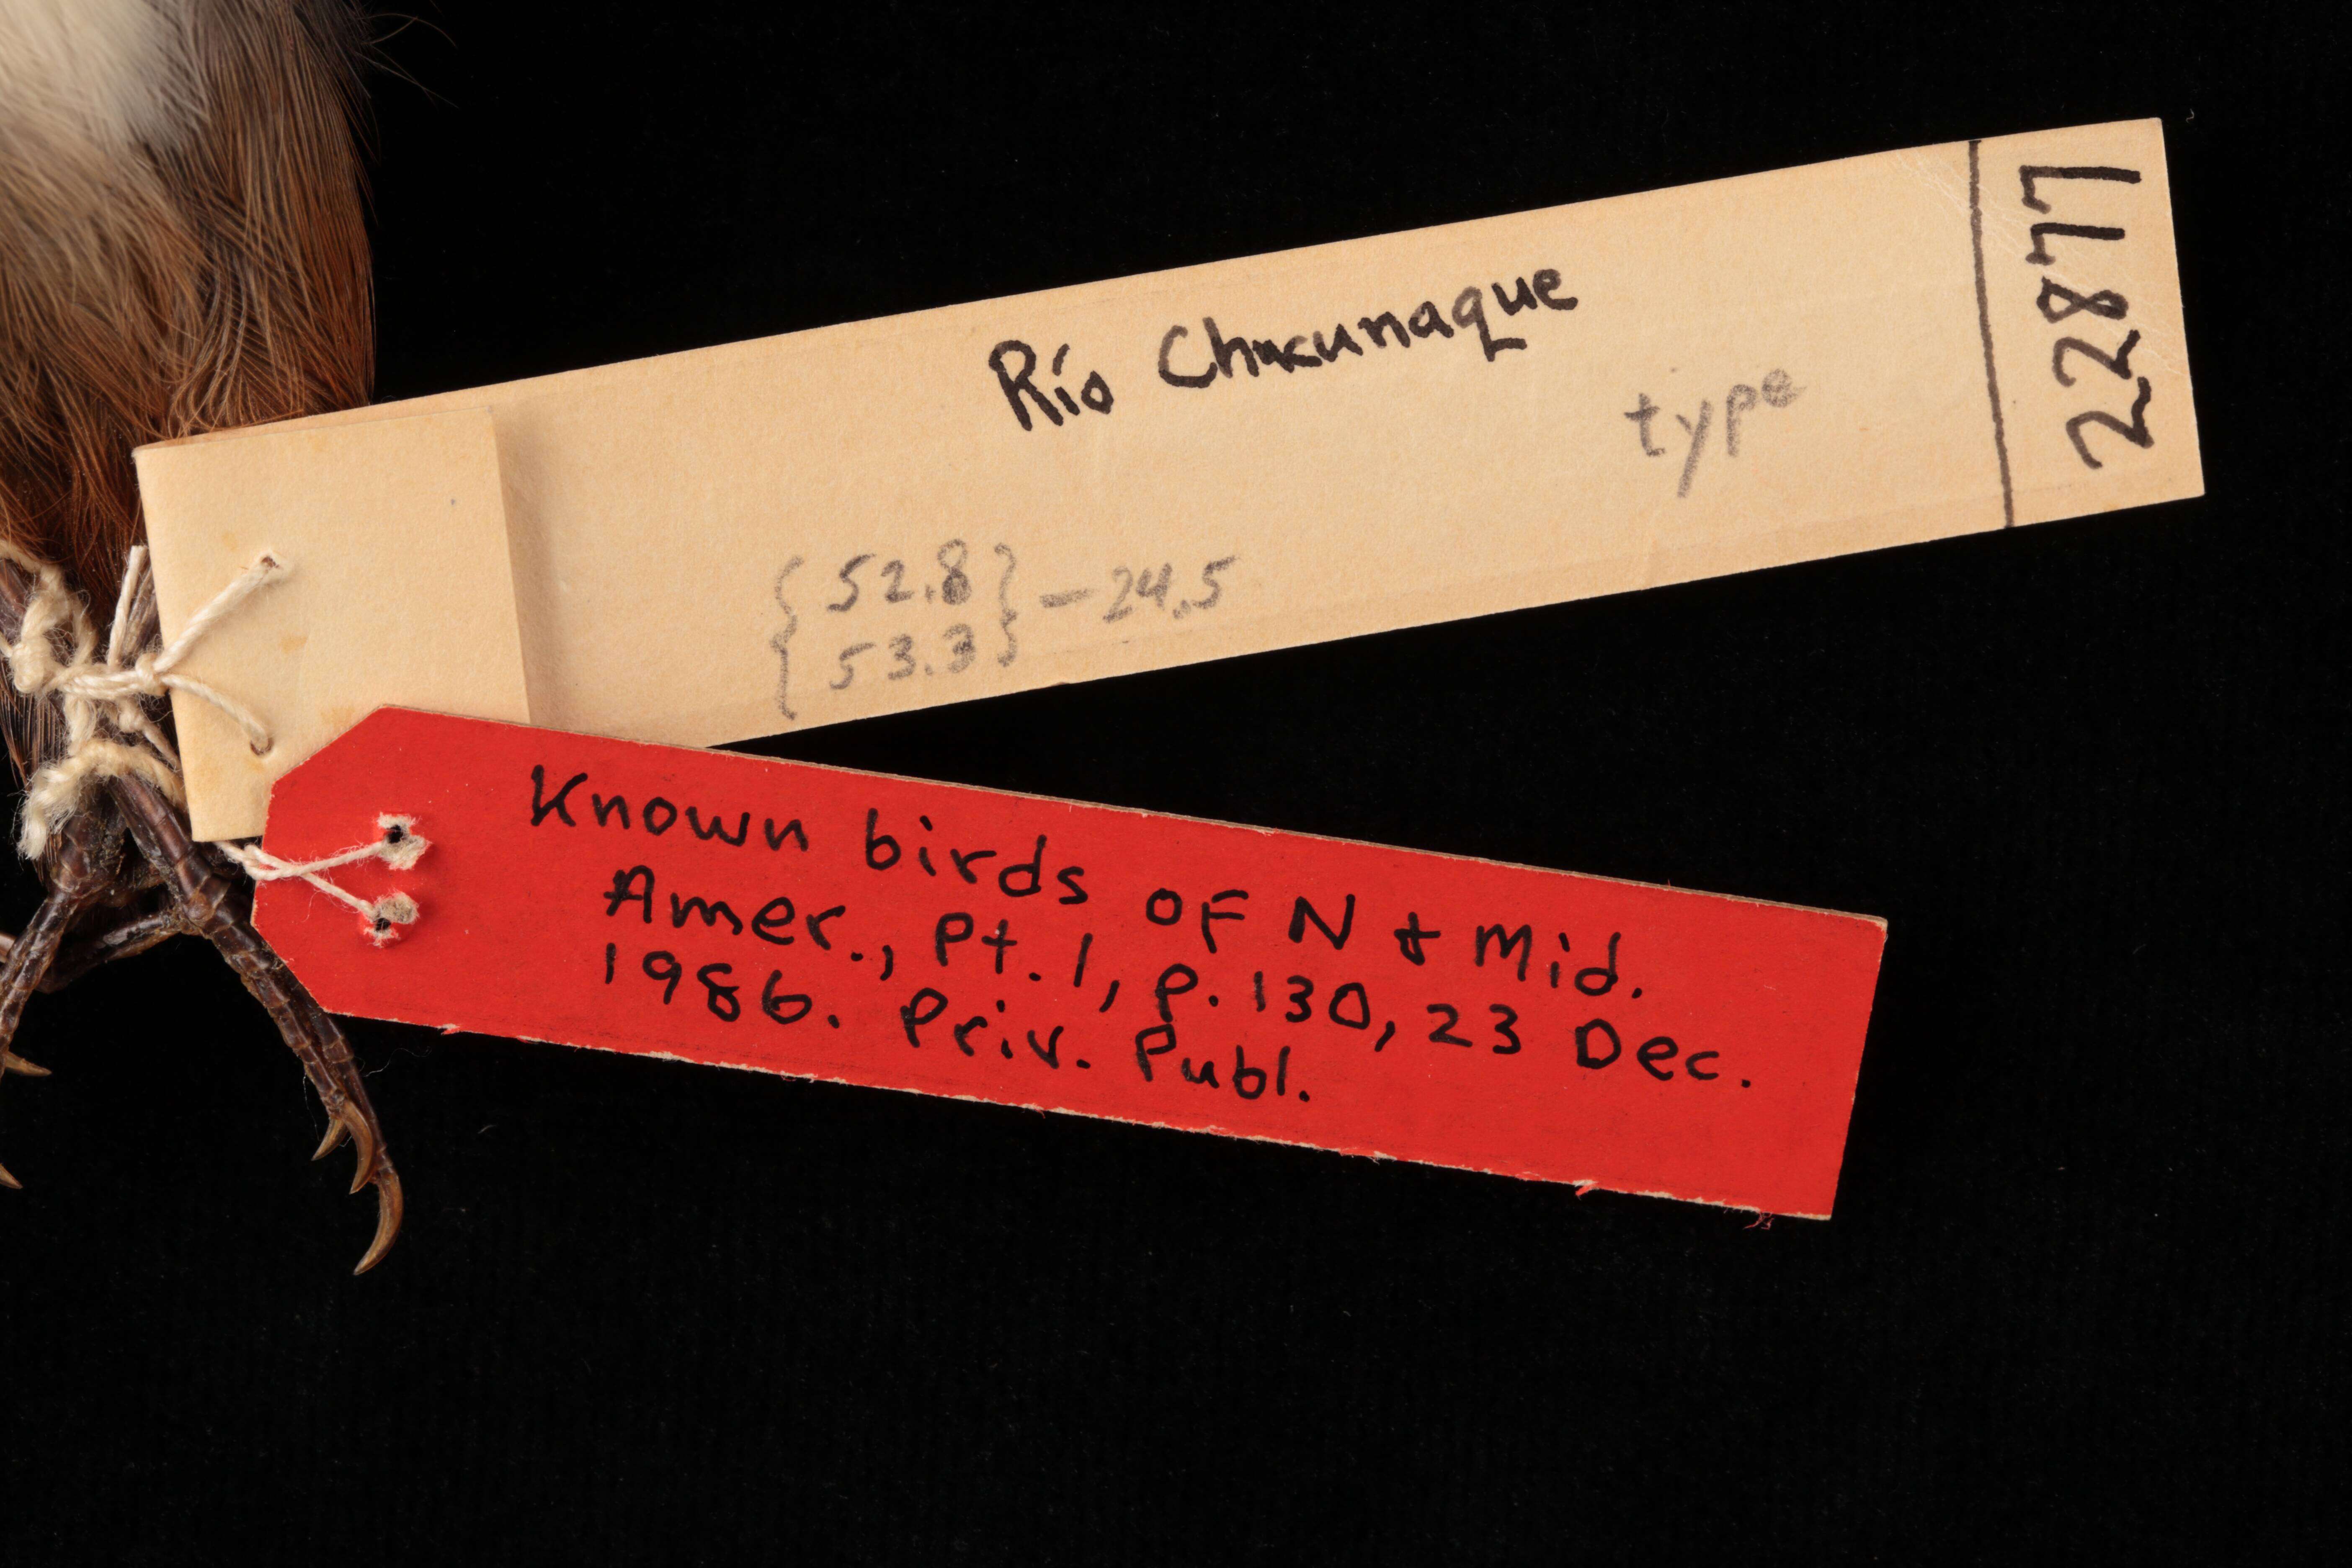 Río Chucunaque
type
{52.8} - 24.5
{53.3}
22877
Known birds of N & Mid.
Amer., Pt. 1, p. 130, 23 Dec.
1986. Priv. Publ.